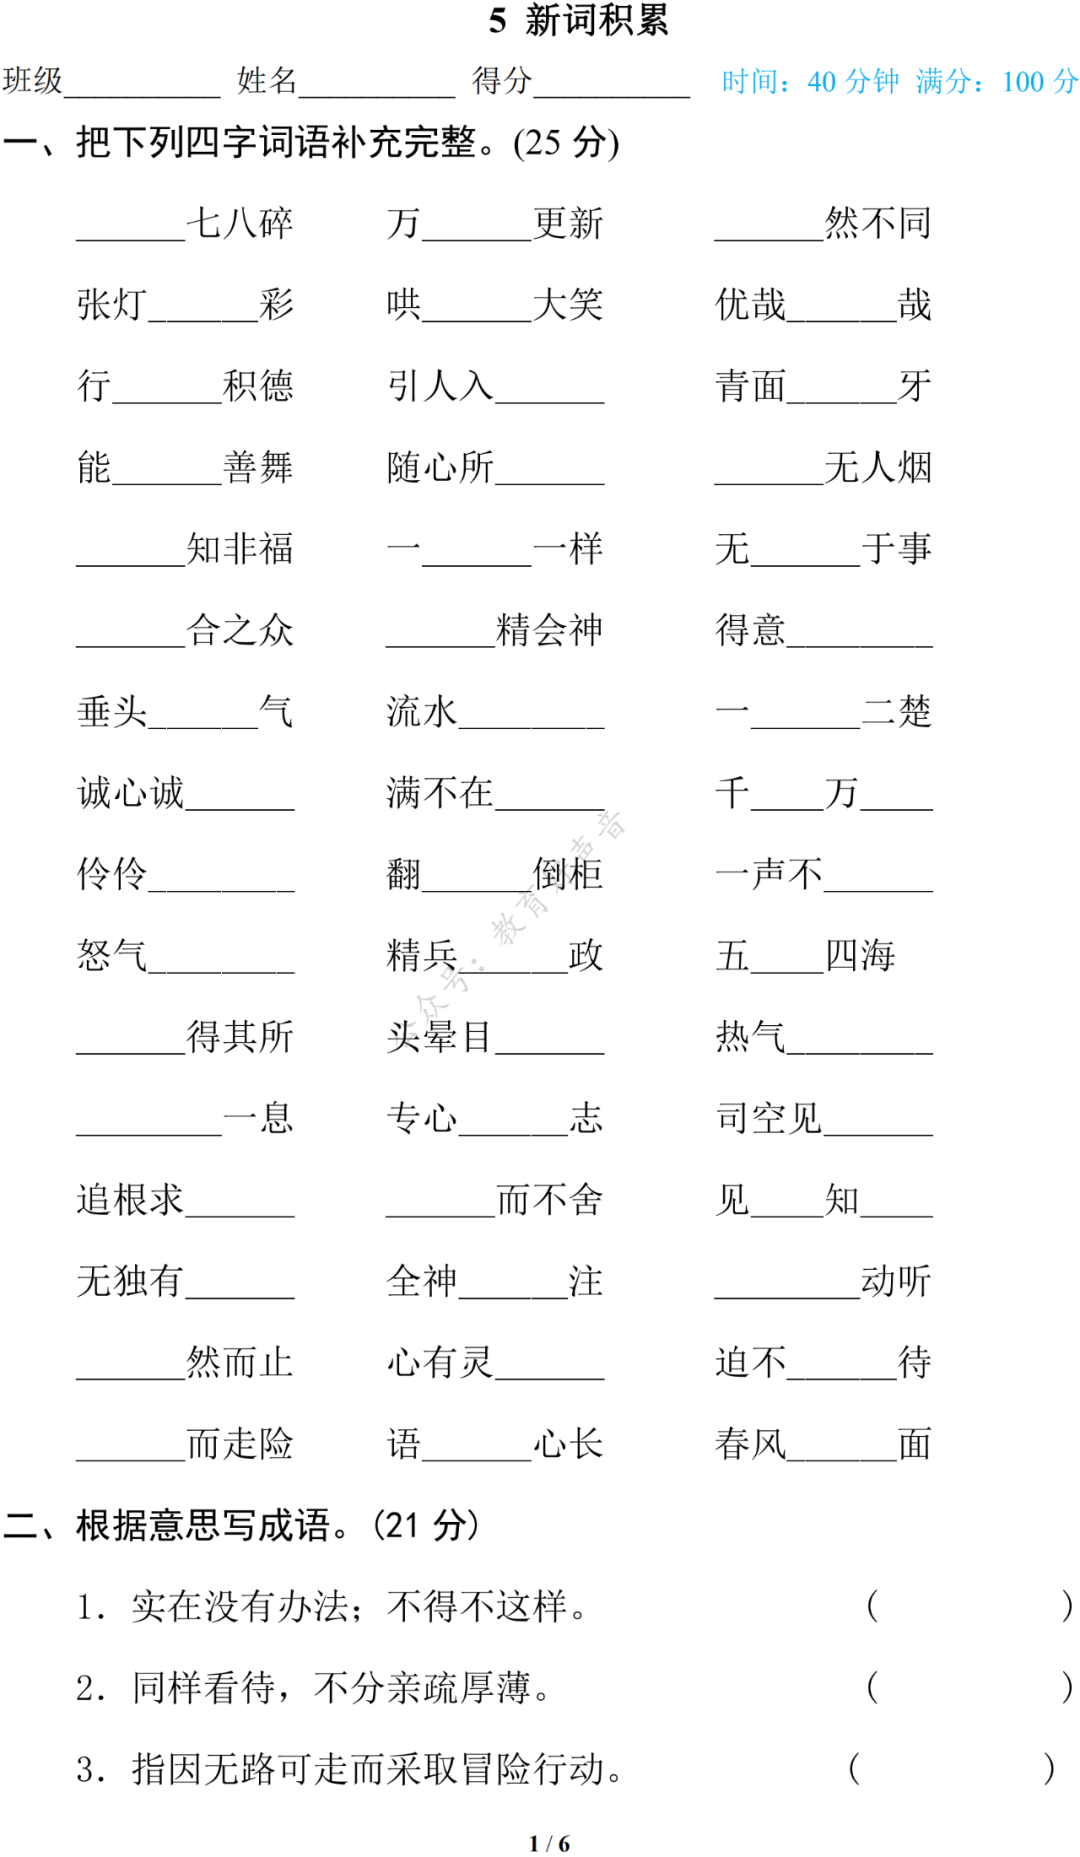 5 新词积累
班级__________ 姓名__________ 得分__________ 时间：40 分钟 满分：100 分
一、把下列四字词语补充完整。(25 分)
______七八碎 万______更新 ______然不同
张灯______彩 哄______大笑 优哉______哉
行______积德 引人入______ 青面______牙
能______善舞 随心所______ ______无人烟
______知非福 一______一样 无______于事
______合之众 ______精会神 得意________
垂头______气 流水________ 一______二楚
诚心诚______ 满不在______ 千____万____
伶伶________ 翻______倒柜 一声不______
怒气________ 精兵______政 五____四海
______得其所 头晕目______ 热气________
________一息 专心______志 司空见______
追根求______ ______而不舍 见____知____
无独有______ 全神______注 ________动听
______然而止 心有灵______ 迫不______待
______而走险 语______心长 春风______面
二、根据意思写成语。(21 分)
1．实在没有办法；不得不这样。 ( )
2．同样看待，不分亲疏厚薄。 ( )
3．指因无路可走而采取冒险行动。 ( )
1 / 6